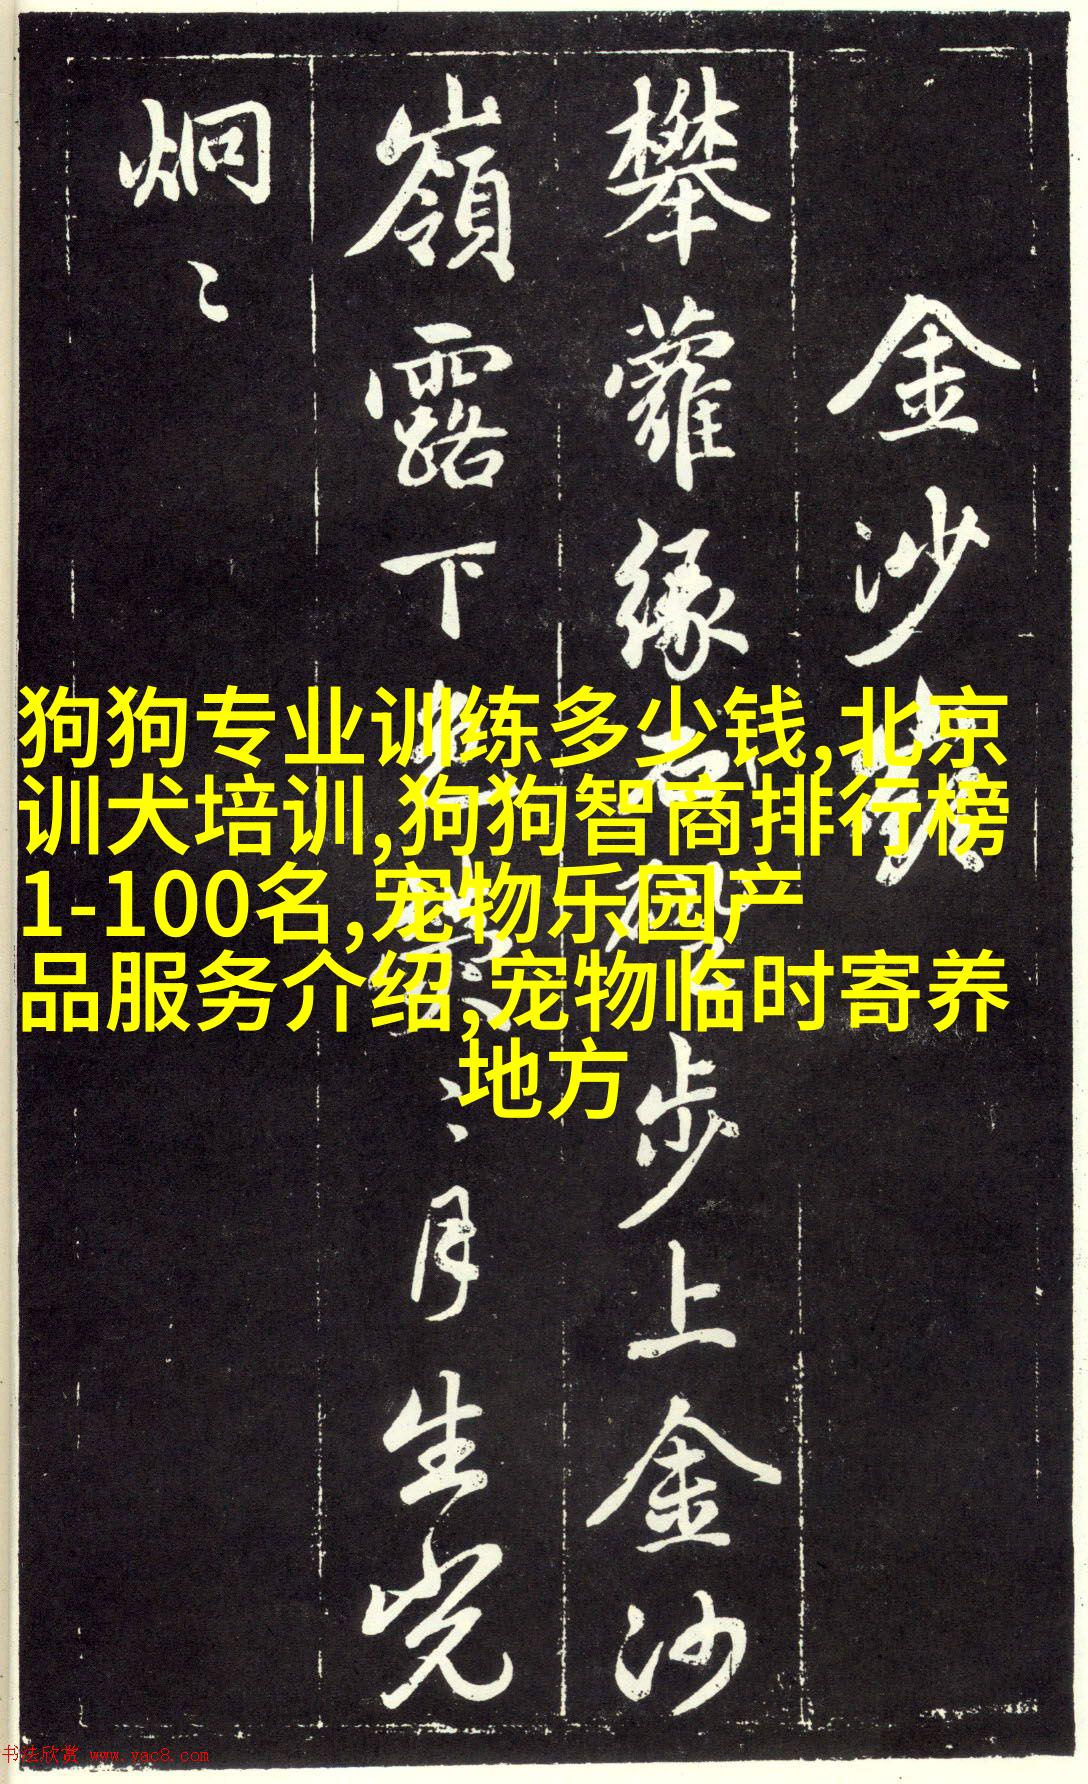 金沙嶺
攀蘿緣石磴步上金沙
嶺露下
月生光
炯〻
狗狗专业训练多少钱,北京
训犬培训,狗狗智商排行榜
1-100名,宠物乐园产
品服务介绍,宠物临时寄养
地方
书法欣赏 www.yac8.com